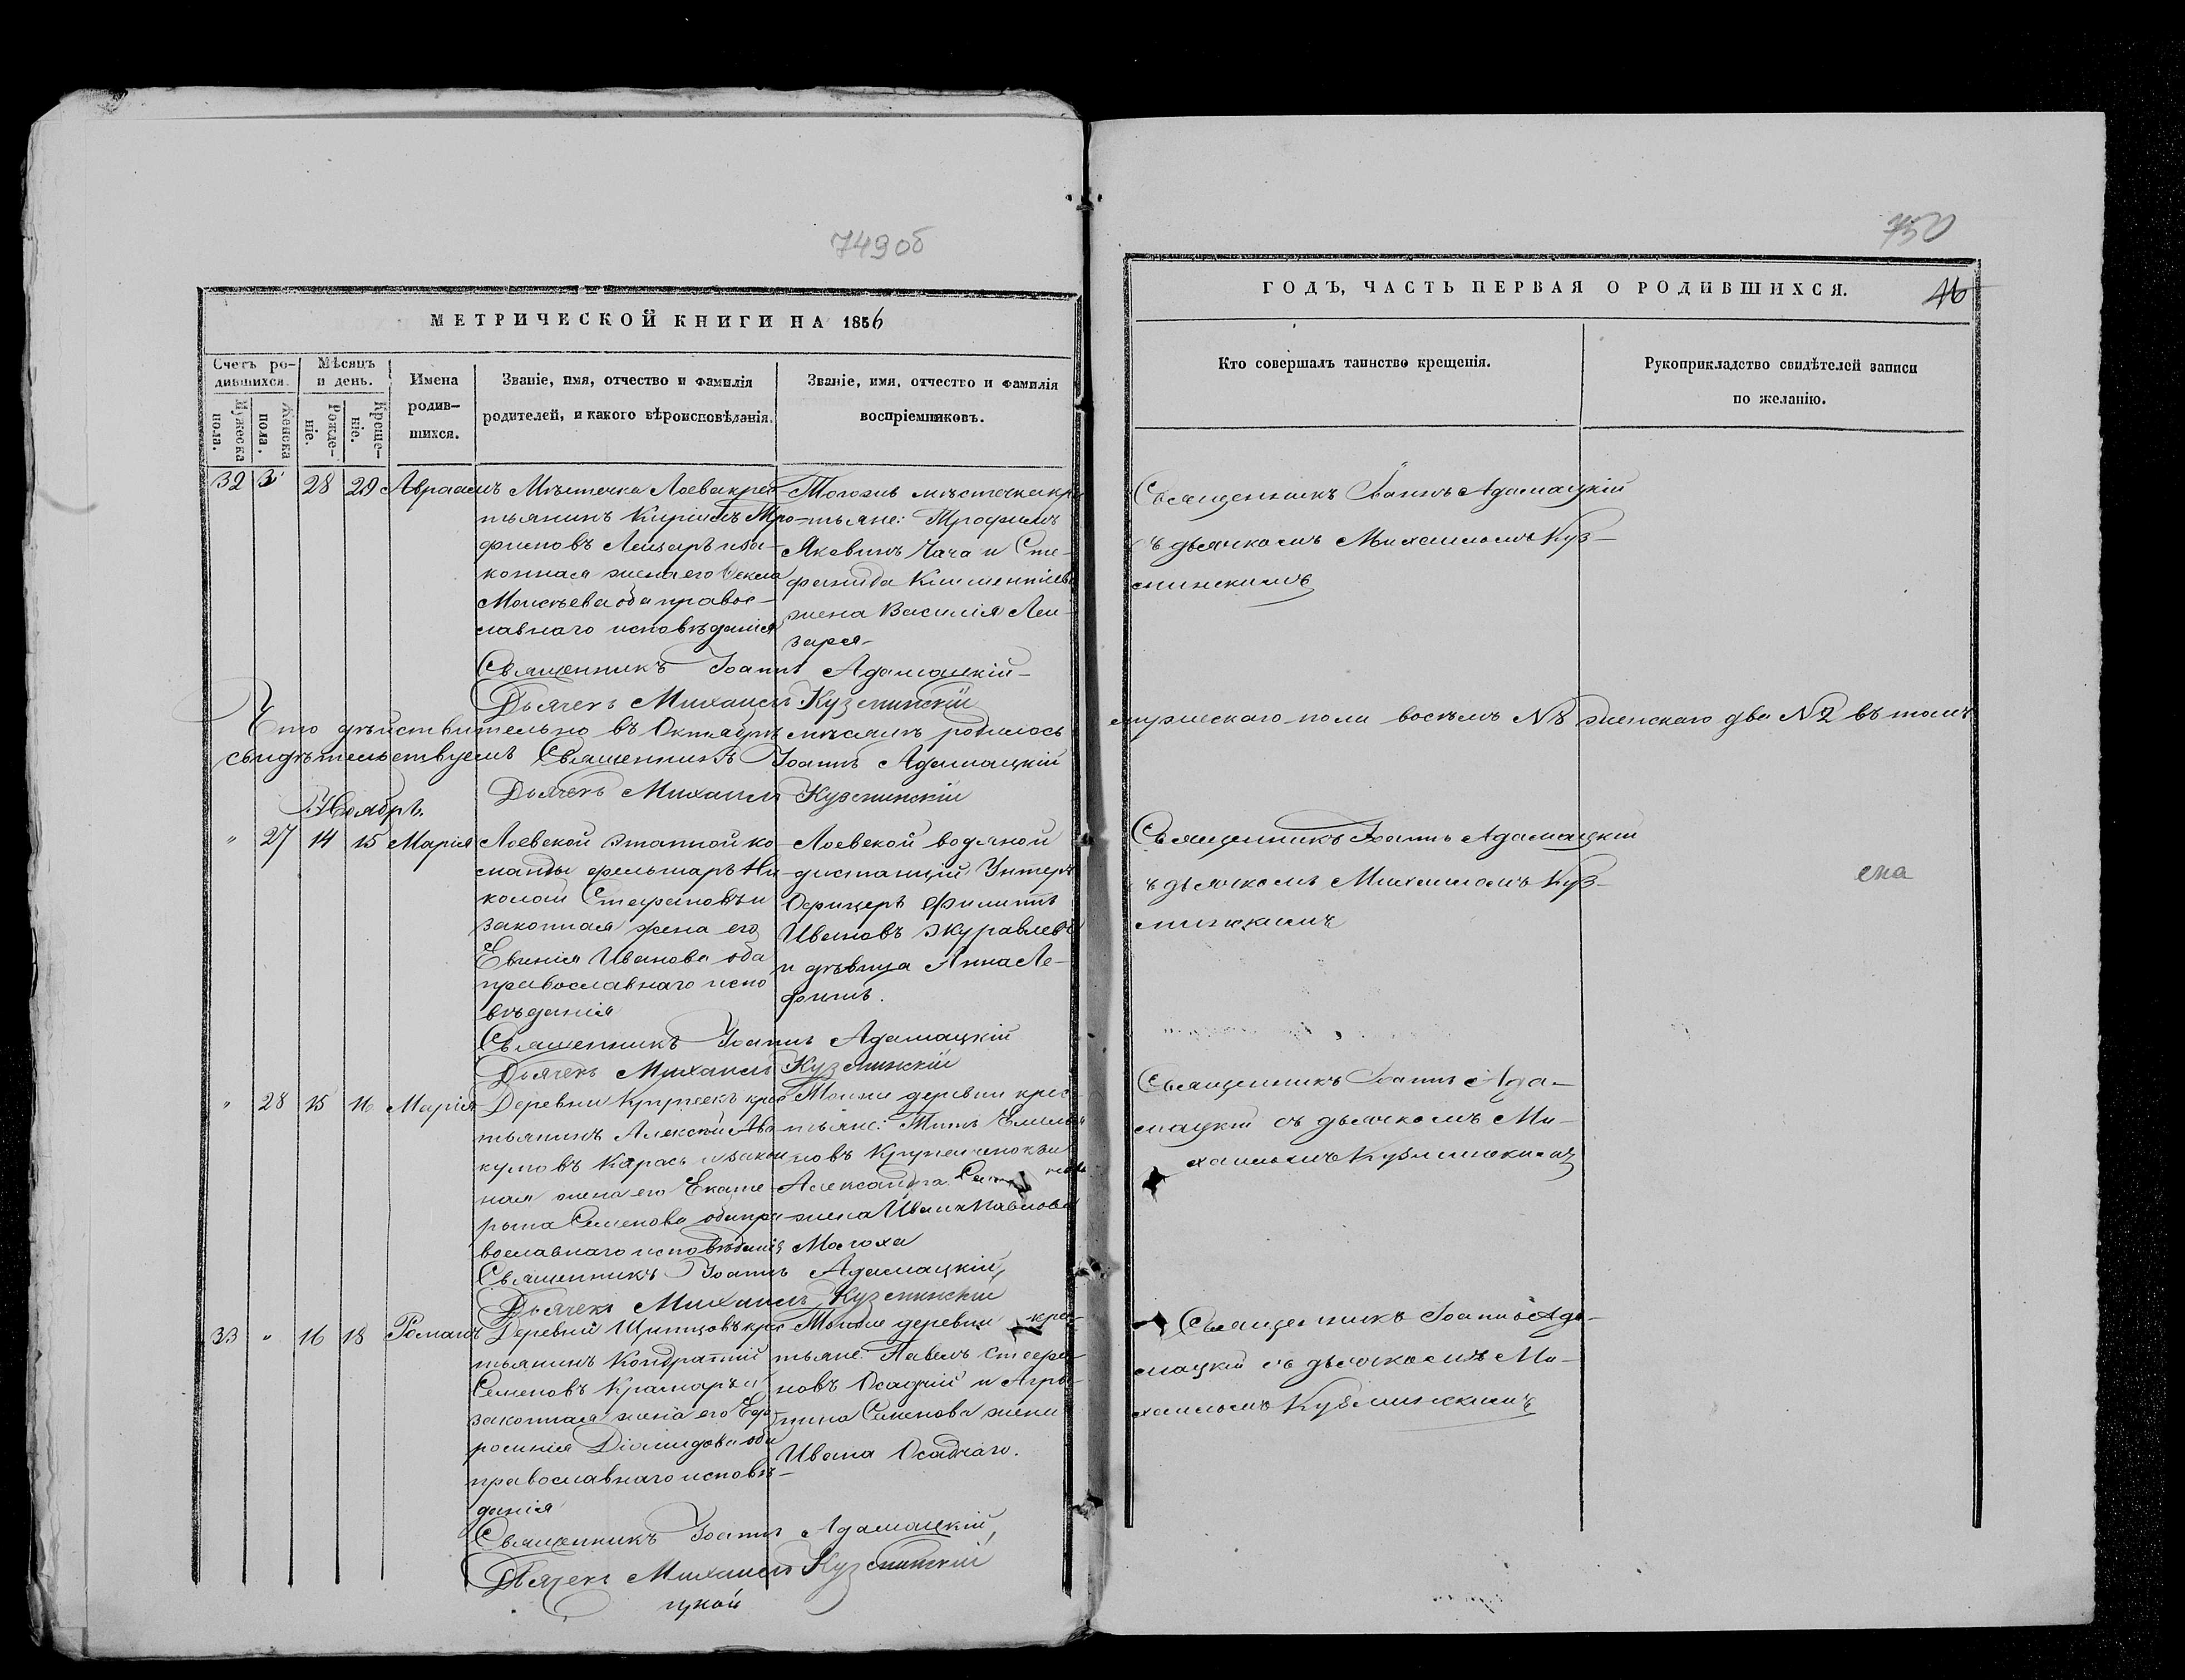 749об
МЕТРИЧЕСКОЙ КНИГИ НА 1856
Счетъ ро-
дившихся.
Мѣсяцъ
и день.
Мужеска
пола.
Женска
пола.
Рожде-
ніе.
Креще-
ніе.
Имена
родив-
шихся.
Званіе, имя, отчество и фамилія
родителей, и какого вѣроисповѣданія.
Званіе, имя, отчество и фамилія
воспріемниковъ.
32 28 29 Авраамъ
Мѣстечка Лоева крес-
тьянинъ Киріилъ Тро-
фимовъ Лешарь и за-
конная жена его Фекла
Моисѣева оба правос-
лавнаго исповѣданія
Тогожъ мѣстечка кре
тьяне: Трофимъ
Яковинъ Чача и Сте-
фанида Климентіева
жена Василія Леи-
заря
Священникъ Іоаннъ Адамацкій
Дьячекъ Михаилъ Кузминскій
Что дѣйствительно въ Октябрѣ мѣсяцѣ родилось
свидѣтельствуемъ Священникъ Іоаннъ Адамацкій
Дьячекъ Михаилъ Кузминскій
Ноябрь.
" 27 14 15 Марія
Лоевской этапной ко
манды фельшаръ Ни-
колай Стефановъ и
законная жена его
Евгенія Иванова оба
православнаго испо
вѣданія
Лоевской водяной
дистанціи Унтеръ
Офицеръ Филиппъ
Ивановъ Журавлевъ
и дѣвица Анна Ле-
финъ.
Священникъ Іоаннъ Адамацкій
Дьячекъ Михаилъ Кузминскій
" 28 15 16 Марія
Деревни Крупеекъ крес
тьянинъ Алексій Ава
кумовъ Карась и закон
ная жена его Екате
рина Семенова оба пра
вославнаго исповѣданія
Тоиже деревни крес-
тьяне: Титъ Емелья
новъ Крупеиченокъ и
Александра
жена Ивана Павлова
Могоха
Священникъ Іоаннъ Адамацкій,
Дьячекъ Михаилъ Кузминскій
33 " 16 18 Романъ
Деревни Щитцовъ крес
тьянинъ Кондратій
Семеновъ Крамаръ и
законная жена его Еф-
росинія Діомидова оба
православнаго исповѣ-
данія
Тоиже деревни крес-
тьяне: Павелъ Стефа-
новъ Осадчій и Агри-
пина Семенова жена
Ивана Осадчаго.
Священникъ Іоаннъ Адамацкій,
Дьячекъ Михаилъ Кузминскій
750
ГОДЪ, ЧАСТЬ ПЕРВАЯ О РОДИВШИХСЯ.
46
Кто совершалъ таинство крещенія.
Рукоприкладство свидѣтелей записи
по желанію.
Священникъ Іоаннъ Адамацкій
съ дьячкомъ Михаиломъ Куз-
минскимъ
мужескаго пола восемь №8 женскаго два №2 въ томъ
Священникъ Іоаннъ Адамацкій
съ дьячкомъ Михаиломъ Куз-
минскимъ
Священникъ Іоаннъ Ада-
мацкій съ дьячкомъ Ми-
хаиломъ Кузминскимъ
Священникъ Іоаннъ Ада-
мацкій съ дьячкомъ Ми-
хаиломъ Кузминскимъ